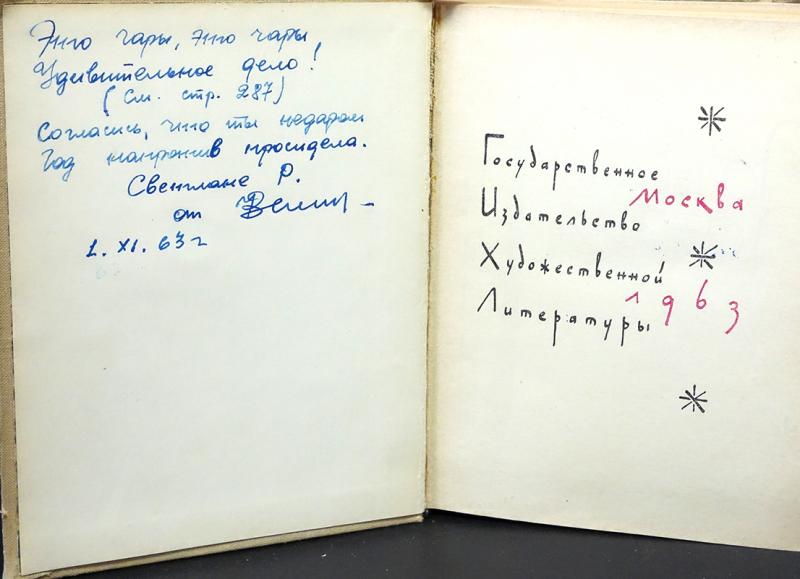 Это чары, это чары,
Удивительное дело!
(См. стр. 287)
Согласись, что ты недаром
Год напротив просидела.
Светлане Р.
от
1. XI. 63 г
Государственное
Москва
Издательство
Художественной
1963
Литературы